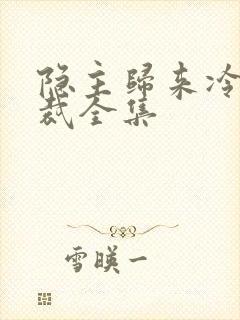 隐主归来冷
裁全集
雪暎一